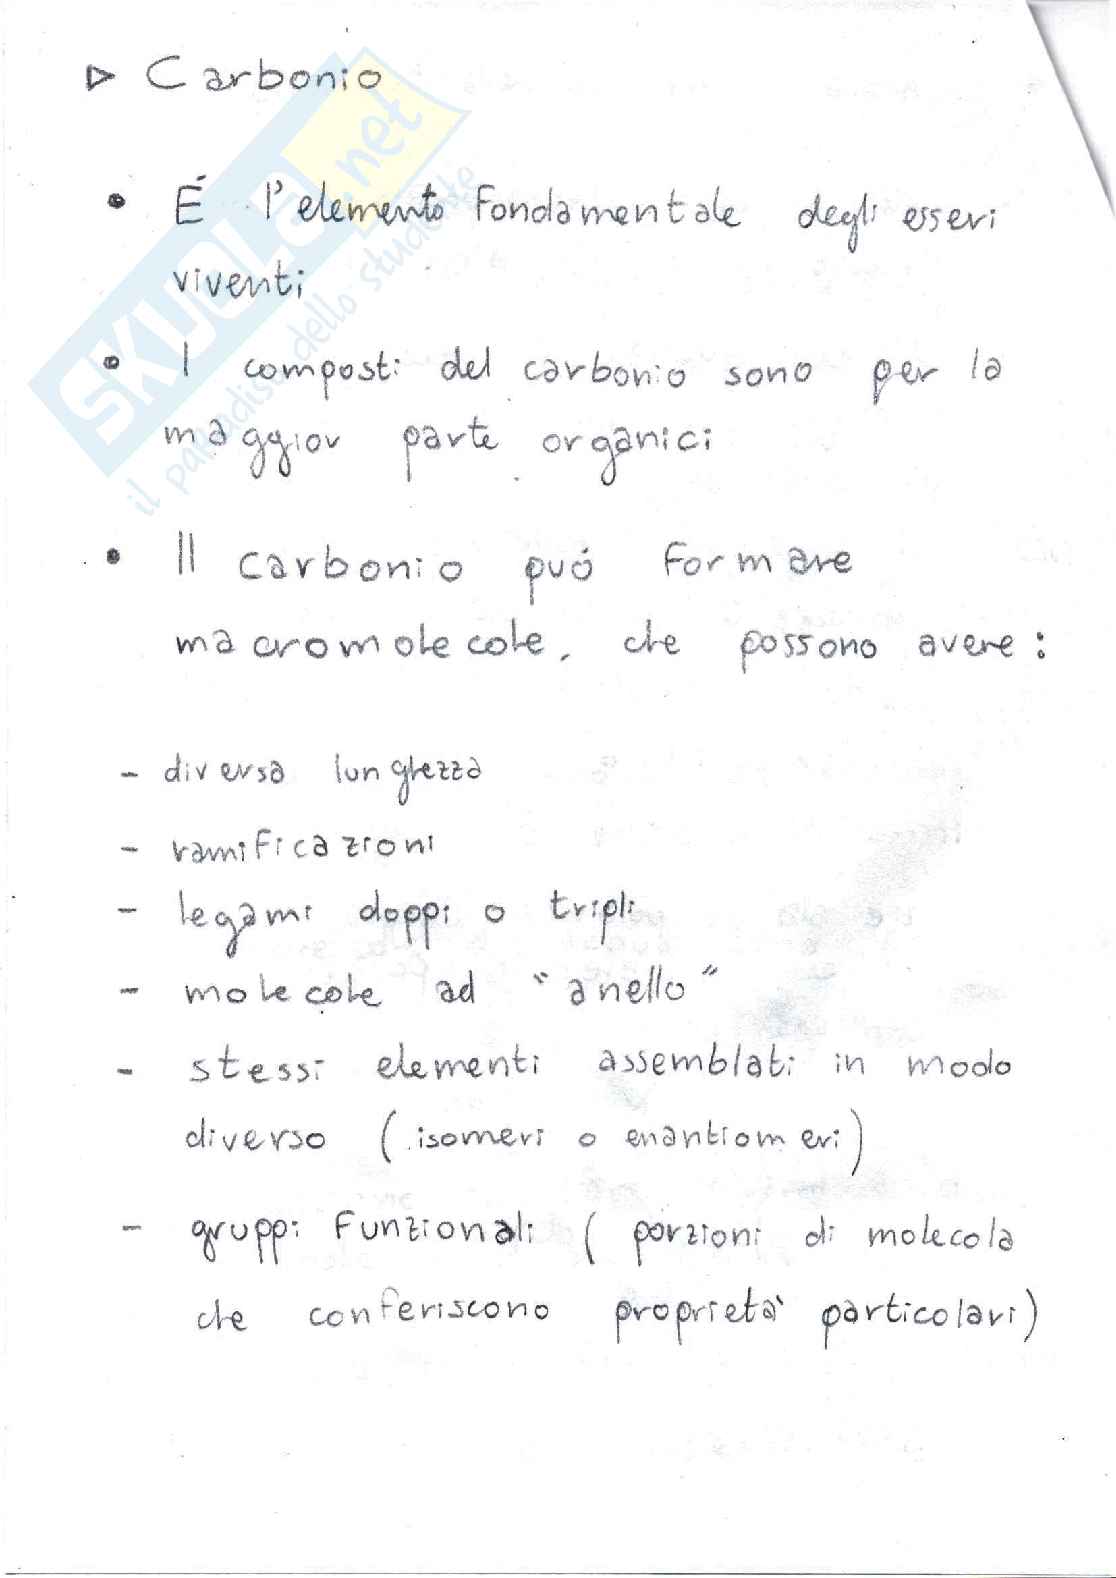 ▷ Carbonio
• É l'elemento fondamentale degli esseri
viventi
• I composti del carbonio sono per la
maggior parte organici
• Il carbonio puó formare
macromolecole, che possono avere:
- diversa lunghezza
- ramificazioni
- legami doppi o tripli
- molecole ad "anello"
- stessi elementi assemblati in modo
diverso (isomeri o enantiomeri)
- gruppi funzionali (porzioni di molecola
che conferiscono proprietà particolari)
SKUOLA.net
il paradiso dello studente